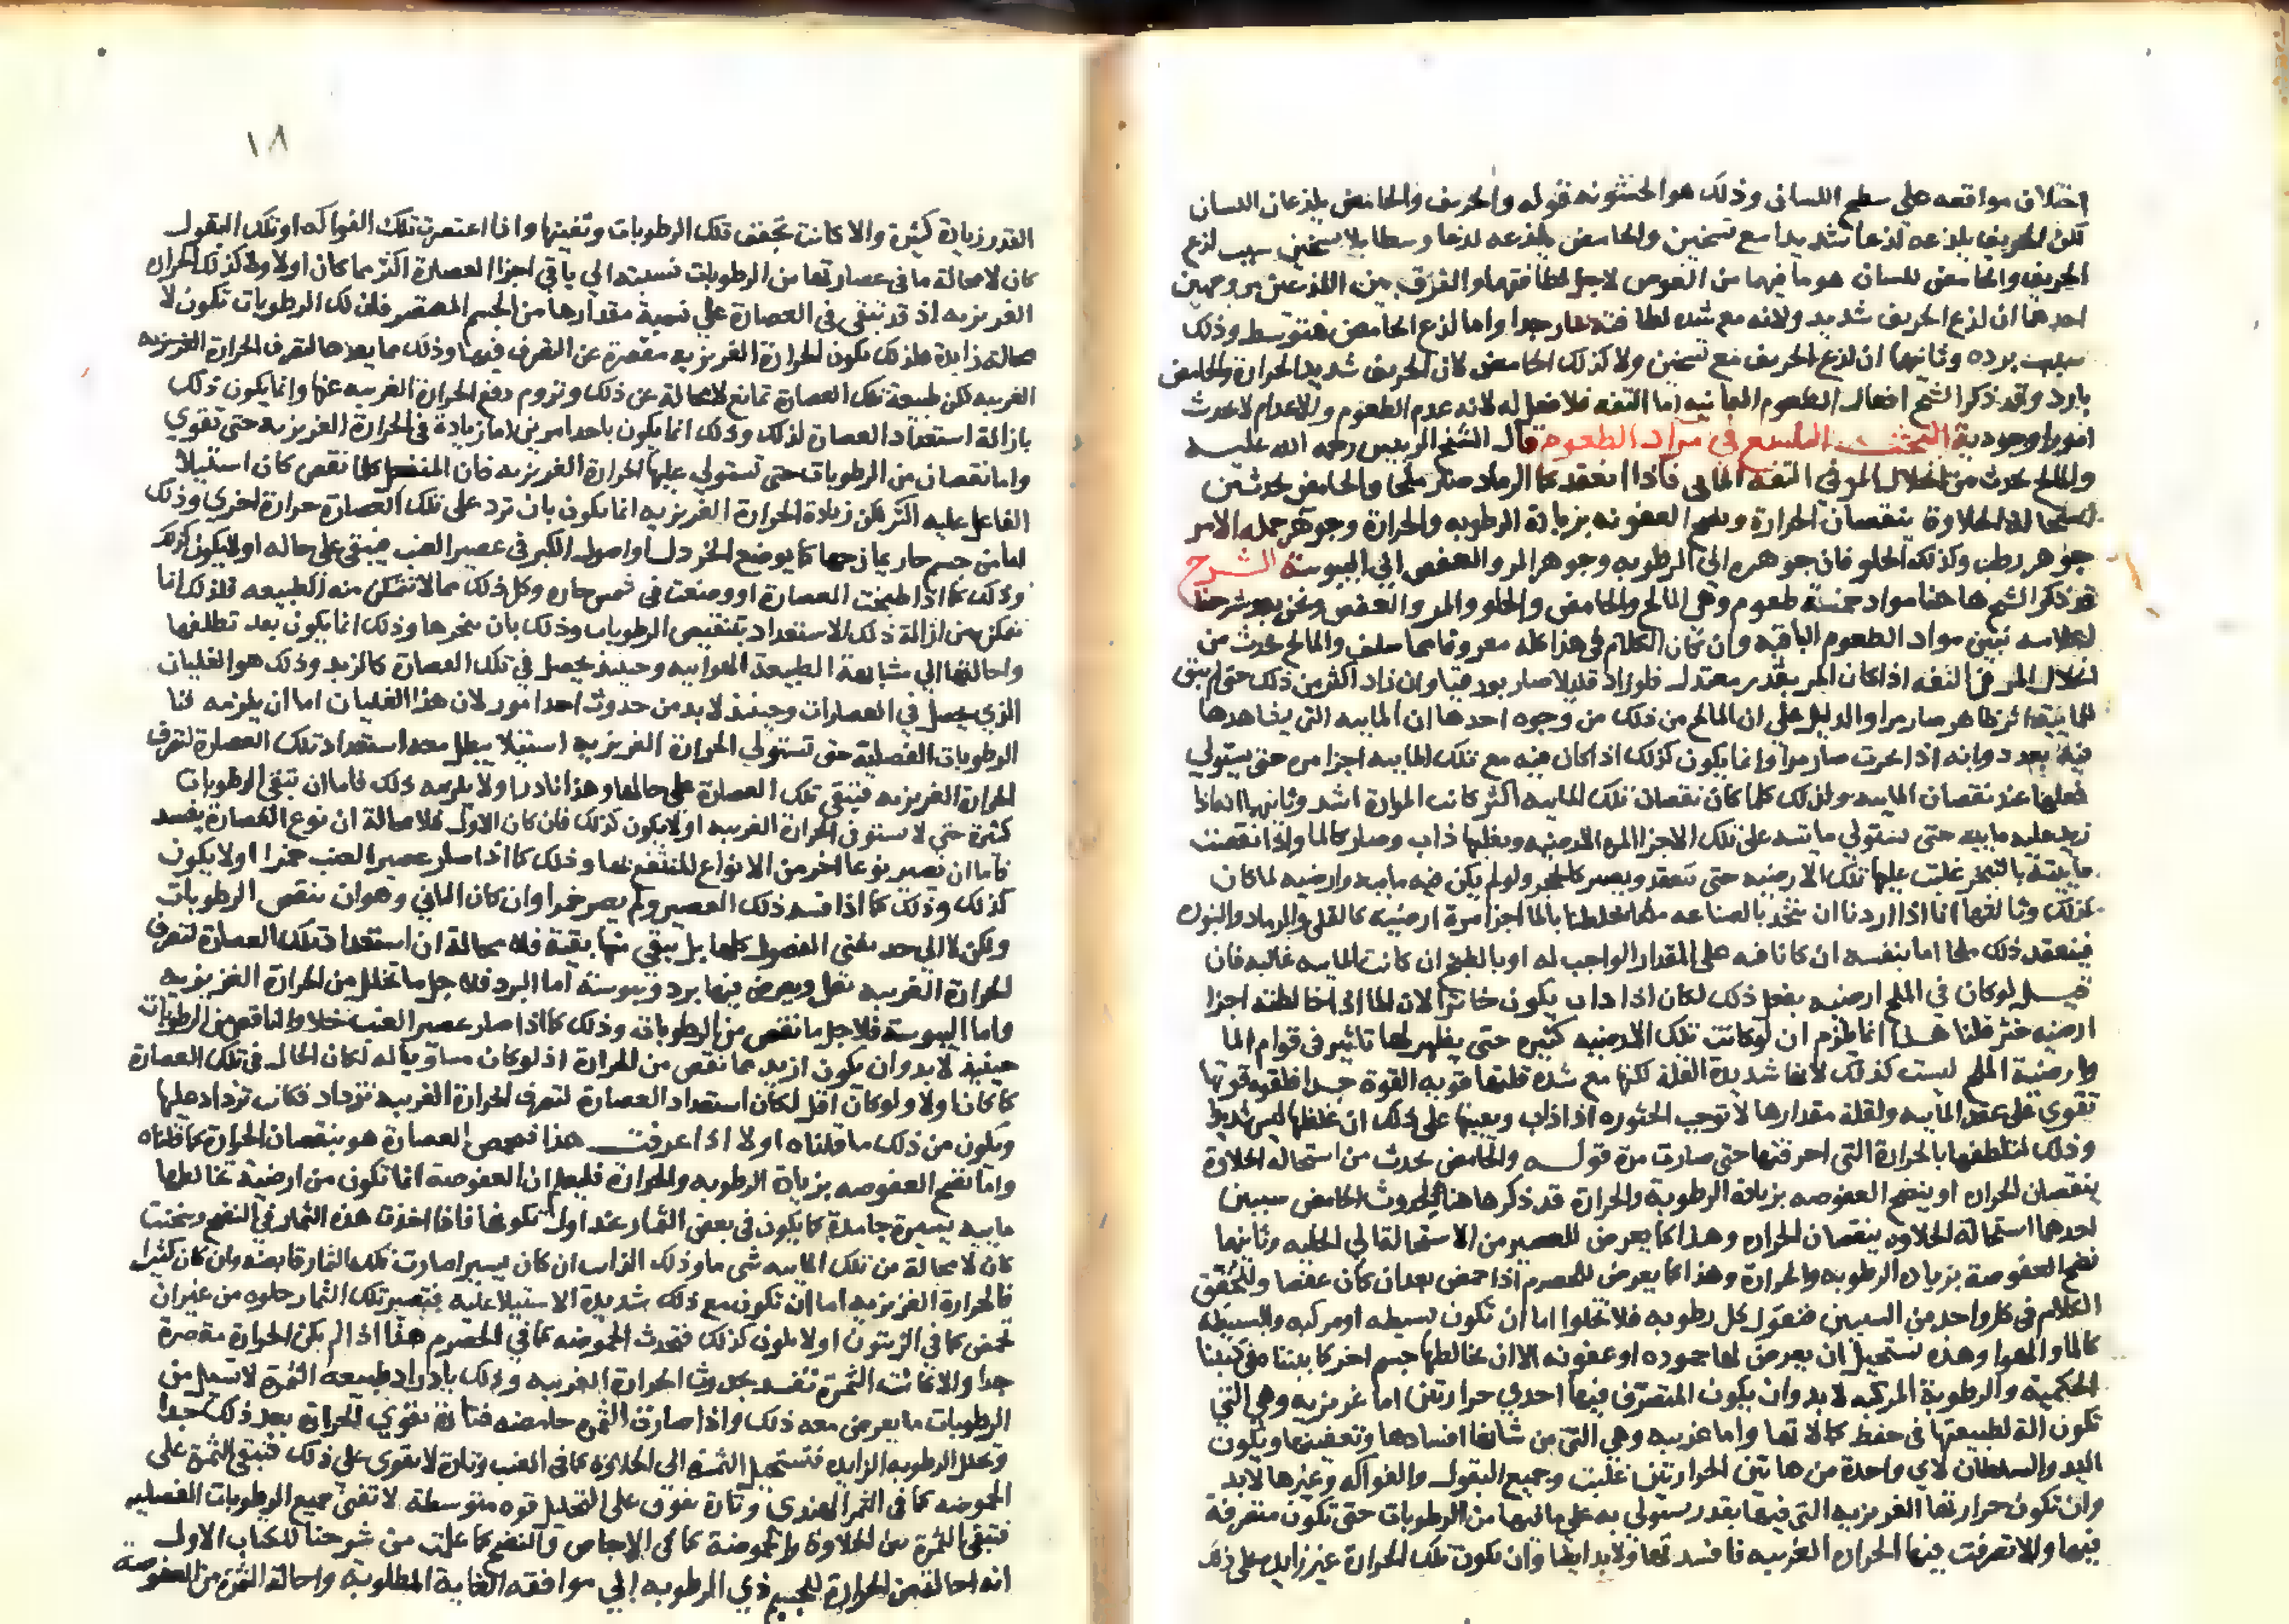 اختلاف مواقعه على سطح اللسان وذلك هو الخشونه قوله والحريف والحامض يلذعان اللسان
لكن الحريف يلذعه لذعا شديدا مع تسخين والحامض يلذعه لذعا وسطا بلا تسخين سبب لذع
الحريف والحامض للسان هو ما فيهما من الغوص لاجل لطافتهما والفرق بين اللذعين من وجهين
احدهما ان لذع الحريف شديد ولانه مع شده لطافته حار جدا واما لذع الحامض فمتوسط وذلك
بسبب برده وثانيهما ان لذع الحريف مع تسخين ولا كذلك الحامض لان الحريف شديد الحرارة والحامض
بارد وقد ذكر الشيخ افعال الطعوم الثمانيه اما التفه فلا فعل له لانه عدم الطعوم والاعدام لا تحدث
امورا وجودية البحث التاسع في مواد الطعوم قال الشيخ الرييس رحمه الله عليه
والملح يحدث من انحلال المر في التفه المايي فاذا انعقد كما الرماد صار ملحا والحامض يحدث من
استحالة الحلاوة بنقصان الحرارة ونضج العفوصه بزيادة الرطوبه والحرارة وجوهر جمله الامر
جوهر رطب وكذلك الحلو فان جوهره الي الرطوبه وجوهر المر والعفص الي اليبوسة الشرح
قد ذكر الشيخ هاهنا مواد خمسة طعوم وهي المالح والحامض والحلو والمر والعفص ونحن بعد شرحنا
لكلامه نبين مواد الطعوم الباقيه وان كان الكلام في هذا كله معروفا مما سلف والمالح يحدث من
انحلال المر في التفه اذا كان المر بقدر معتدل فلو زاد قليلا صار بورقيا وان زاد اكثر من ذلك حتى لم يبق
للماييه اثر ظاهر صار مرا والدليل على ان المالح من ذلك من وجوه احدها ان الماييه التي يشاهدها
فيه بعد وانه اذا احرق صار مرا وانما يكون كذلك اذ كان فيه مع تلك الماييه اجزا مره حتى يستولي
فعلها عند نقصان الماييه ولذلك كلما كان نقصان تلك الماييه اكثر كانت المرارة اشد وثانيها انه اذا
زيد عليه ماييه حتى تستولي ماييته على تلك الاجزا المره الارضيه ويغلبها ذاب وصار كالما واذا نقصت
ماييته بالتبخر غلبت عليها تلك الارضيه حتى تنعقد ويصير كالحجر ولو لم يكن فيه ماييه وارضيه لما كان
كذلك وثالثها انا اذا اردنا ان نتخذ بالصناعه ملحا خلطنا بالما اجزا مرة ارضيه كالقلي والرماد والنوره
فينعقد ذلك ملحا اما بنفسه ان كانا فيه على المقدار الواجب له او بالطبخ ان كانت الماييه غالبه فان
قيل لو كان في الملح ارضيه بفعل ذلك لكان اذا ذاب يكون خاثرا لان الما الذي تخالطه اجزا
ارضيه خثر قلنا هذا انما يلزم ان لو كانت تلك الارضيه كثيره حتى يظهر لها تاثير في قوام الما
وارضية الملح ليست كذلك لانها شديدة القلة لكنها مع شدة قلتها قويه القوة جدا فلقوه قوتها
تقوى على عقد الماييه ولقلة مقدارها لا توجب الخثوره اذا ذاب ويعينها على ذلك ان غلظها ليس شديدا
وذلك لتلطفها بالحرارة التي احرقتها حتى صارت مرة قوله والحامض يحدث من استحالة الحلاوة
بنقصان الحراره او ينضج العفوصه بزيادة الرطوبة والحرارة قد ذكر هاهنا لحدوث الحامض سببين
احدهما استحالة الحلاوه بنقصان الحراره وهذا كما يعرض للعصير من الاستحالة الي الخليه وثانيهما
نضج العفوصة بزياده الرطوبه والحرارة وهذا كما يعرض للحصرم اذا حمض بعد ان كان عفصا ولنحقق
الكلام في كل واحد من السببين فنقول كل رطوبه فلا تخلوا اما ان تكون بسيطه او مركبه والبسيطه
كالما والهوا وهذه تستحيل ان يعرض لها جموده او عفونه الا ان يخالطها جسم اخر كما بينا في كتبنا
الحكمية والرطوبة المركبه لابد وان يكون المتصرف فيها احدي حرارتين اما غريزيه وهي التي
تكون الة لطبيعتها في حفظ كمالاتها واما غريبه وهي التي من شانها افسادها وتعفينها وتكون
اليد والسلطان لاي واحدة من هاتين الحرارتين غلبت وجميع البقول والفواكه وغيرها لابد
وان تكون حرارتها الغريزيه التي فيها بقدر يستولي به على ما فيها من الرطوبات حتى تكون متصرفة
فيها والا تصرفت فيها الحراره الغريبه فافسدتها ولابد ايضا وان تكون تلك الحرارة غير زايده على ذلك
١٨
القدر زيادة كثيرة والا كانت تجفف تلك الرطوبات وتفنيها واذا اعتصرت تلك الفواكه او تلك البقول
كان لا محالة ما في عصارتها من الرطوبات نسبته الي باقي اجزا العصارة اكثر مما كان اولا ولا كذلك الحراره
الغريزيه اذ قد تبقى في العصارة علي نسبة مقدارها من الجسم المعتصر فلذلك الرطوبات تكون لا
محالة زايدة فلذلك تكون الحرارة الغريزيه مقصرة عن التصرف فيها وذلك مما يعدها لتصرف الحرارة الغريزيه
الغريبه لكن طبيعة تلك العصارة تمانع لا محالة عن ذلك وتروم دفع الحرارة الغريبه عنها وانما يكون ذلك
بازالة استعداد العصارة لذلك وذلك انما يكون باحد امرين اما زيادة في الحرارة الغريزيه حتى تقوي
واما نقصان من الرطوبات حتى تستولي عليها الحرارة الغريزيه فان المنفعل كلما نقص كان استيلا
الفاعل عليه اكثر لكن زيادة الحرارة الغريزيه انما يكون بان ترد على تلك العصارة حرارة اخرى وذلك
اما من جسم حار يمازجها كما يوضع الخردل او اصول الكبر في عصير العنب فيبقى على حاله او لا يكون كذلك
وذلك كما اذا طبخت العصارة او وضعت في شمس حاره وكل ذلك مما لا تتمكن منه الطبيعه فلذلك انما
تتمكن من ازالة ذلك الاستعداد بتنقيص الرطوبات وذلك بان تبخرها وذلك انما يكون بعد تلطفها
واحالتها الي مشابهة الطبيعة الهواييه وحينيذ يحصل في تلك العصارة كالزبد وذلك هو الغليان
الذي يحصل في العصارات وحينيذ لابد من حدوث احد امور لان هذا الغليان اما ان يلزمه فنا
الرطوبات الفضلية حتى تستولي الحرارة الغريزيه استيلا يبطل معه استعداد تلك العصارة لتصرف
الحرارة الغريزيه فتبقى تلك العصارة على حالها وهذا نادرا ولا يلزمه ذلك فاما ان تبقى الرطوبات
كثيرة حتى لا تستوفي الحرارة الغريبه او لا يكون كذلك فان كان الاول فلا محالة ان نوع العصارة يفسد
فاما ان تصير نوعا اخر من الانواع المنتفع بها وذلك كما اذا صار عصير العنب خمرا او لا يكون
كذلك وذلك كما اذا فسد ذلك العصير ولم يصر خمرا وان كان الثاني وهو ان تنقص الرطوبات
ولكن لا الي حد تفني الفضول كلها بل يبقى منها بقية فلا محالة ان استعداد تلك العصارة لتصرف
الحرارة الغريبه تقل ويعرض فيها برد ويبوسة اما البرد فلاجل ما تحلل من الحرارة الغريزيه
واما اليبوسة فلاجل ما نقص من الرطوبات وذلك كما اذا صار عصير العنب خلا والناقص من الرطوبات
حينيذ لابد وان يكون ازيد مما نقص من الحرارة اذ لو كان مساويا له لكان الحال في تلك العصارة
كما كان اولا ولو كان اقل لكان استعداد العصارة لتصرف الحرارة الغريبه تزداد فكانت تزداد عليها
ويكون من ذلك ما قلناه اولا اذا عرفت هذا فحمض العصارة هو بنقصان الحرارة كما قلناه
واما نضج العفوصه بزيادة الرطوبه والحرارة فليعلم ان العفوصة انما تكون من ارضية تخالطها
ماييه يسيرة جامدة كما يكون في بعض الثمار عند اول تكونها فاذا اخذت هذه الثمار في النضج وسخنت
كان لا محالة من تلك الماييه شي ما وذلك الذايب ان كان يسيرا صارت تلك الثمار قابضه وان كان كثيرا
فالحرارة الغريزيه اما ان تكون مع ذلك شديدة الاستيلا عليه فتصير تلك الثمار حلوه من غير ان
تحمض كما في الزيتون او لا يكون كذلك فتحدث الحموضه كما في الحصرم هذا اذا لم يكن الحرارة مقصرة
جدا والا كانت الثمرة تفسد بحدوث الحرارة الغريبه وذلك بازدياد طبيعه الثمرة لا تستبدل من
الرطوبات ما يعرض معه ذلك واذا صارت الثمره حامضه فتارة تقوي الحرارة بعد ذلك جدا
وتحلل الرطوبه الزايده فتستحيل الثمرة الى الحلاوة كما في العنب وتارة لا تقوى على ذلك فتبقى الثمرة على
الحموضه كما في التمر الهندي وتارة تقوى على التحليل قوه متوسطة لا تفني جميع الرطوبات الفضليه
فتبقى الثمرة بين الحلاوة والحموضة كما في الاجاص والنضج كما علمت من شرحنا للكتاب الاول
انه احالة من الحرارة للجسم ذي الرطوبه الي موافقة الغاية المطلوبة واحالة الثمرة من العفوصة